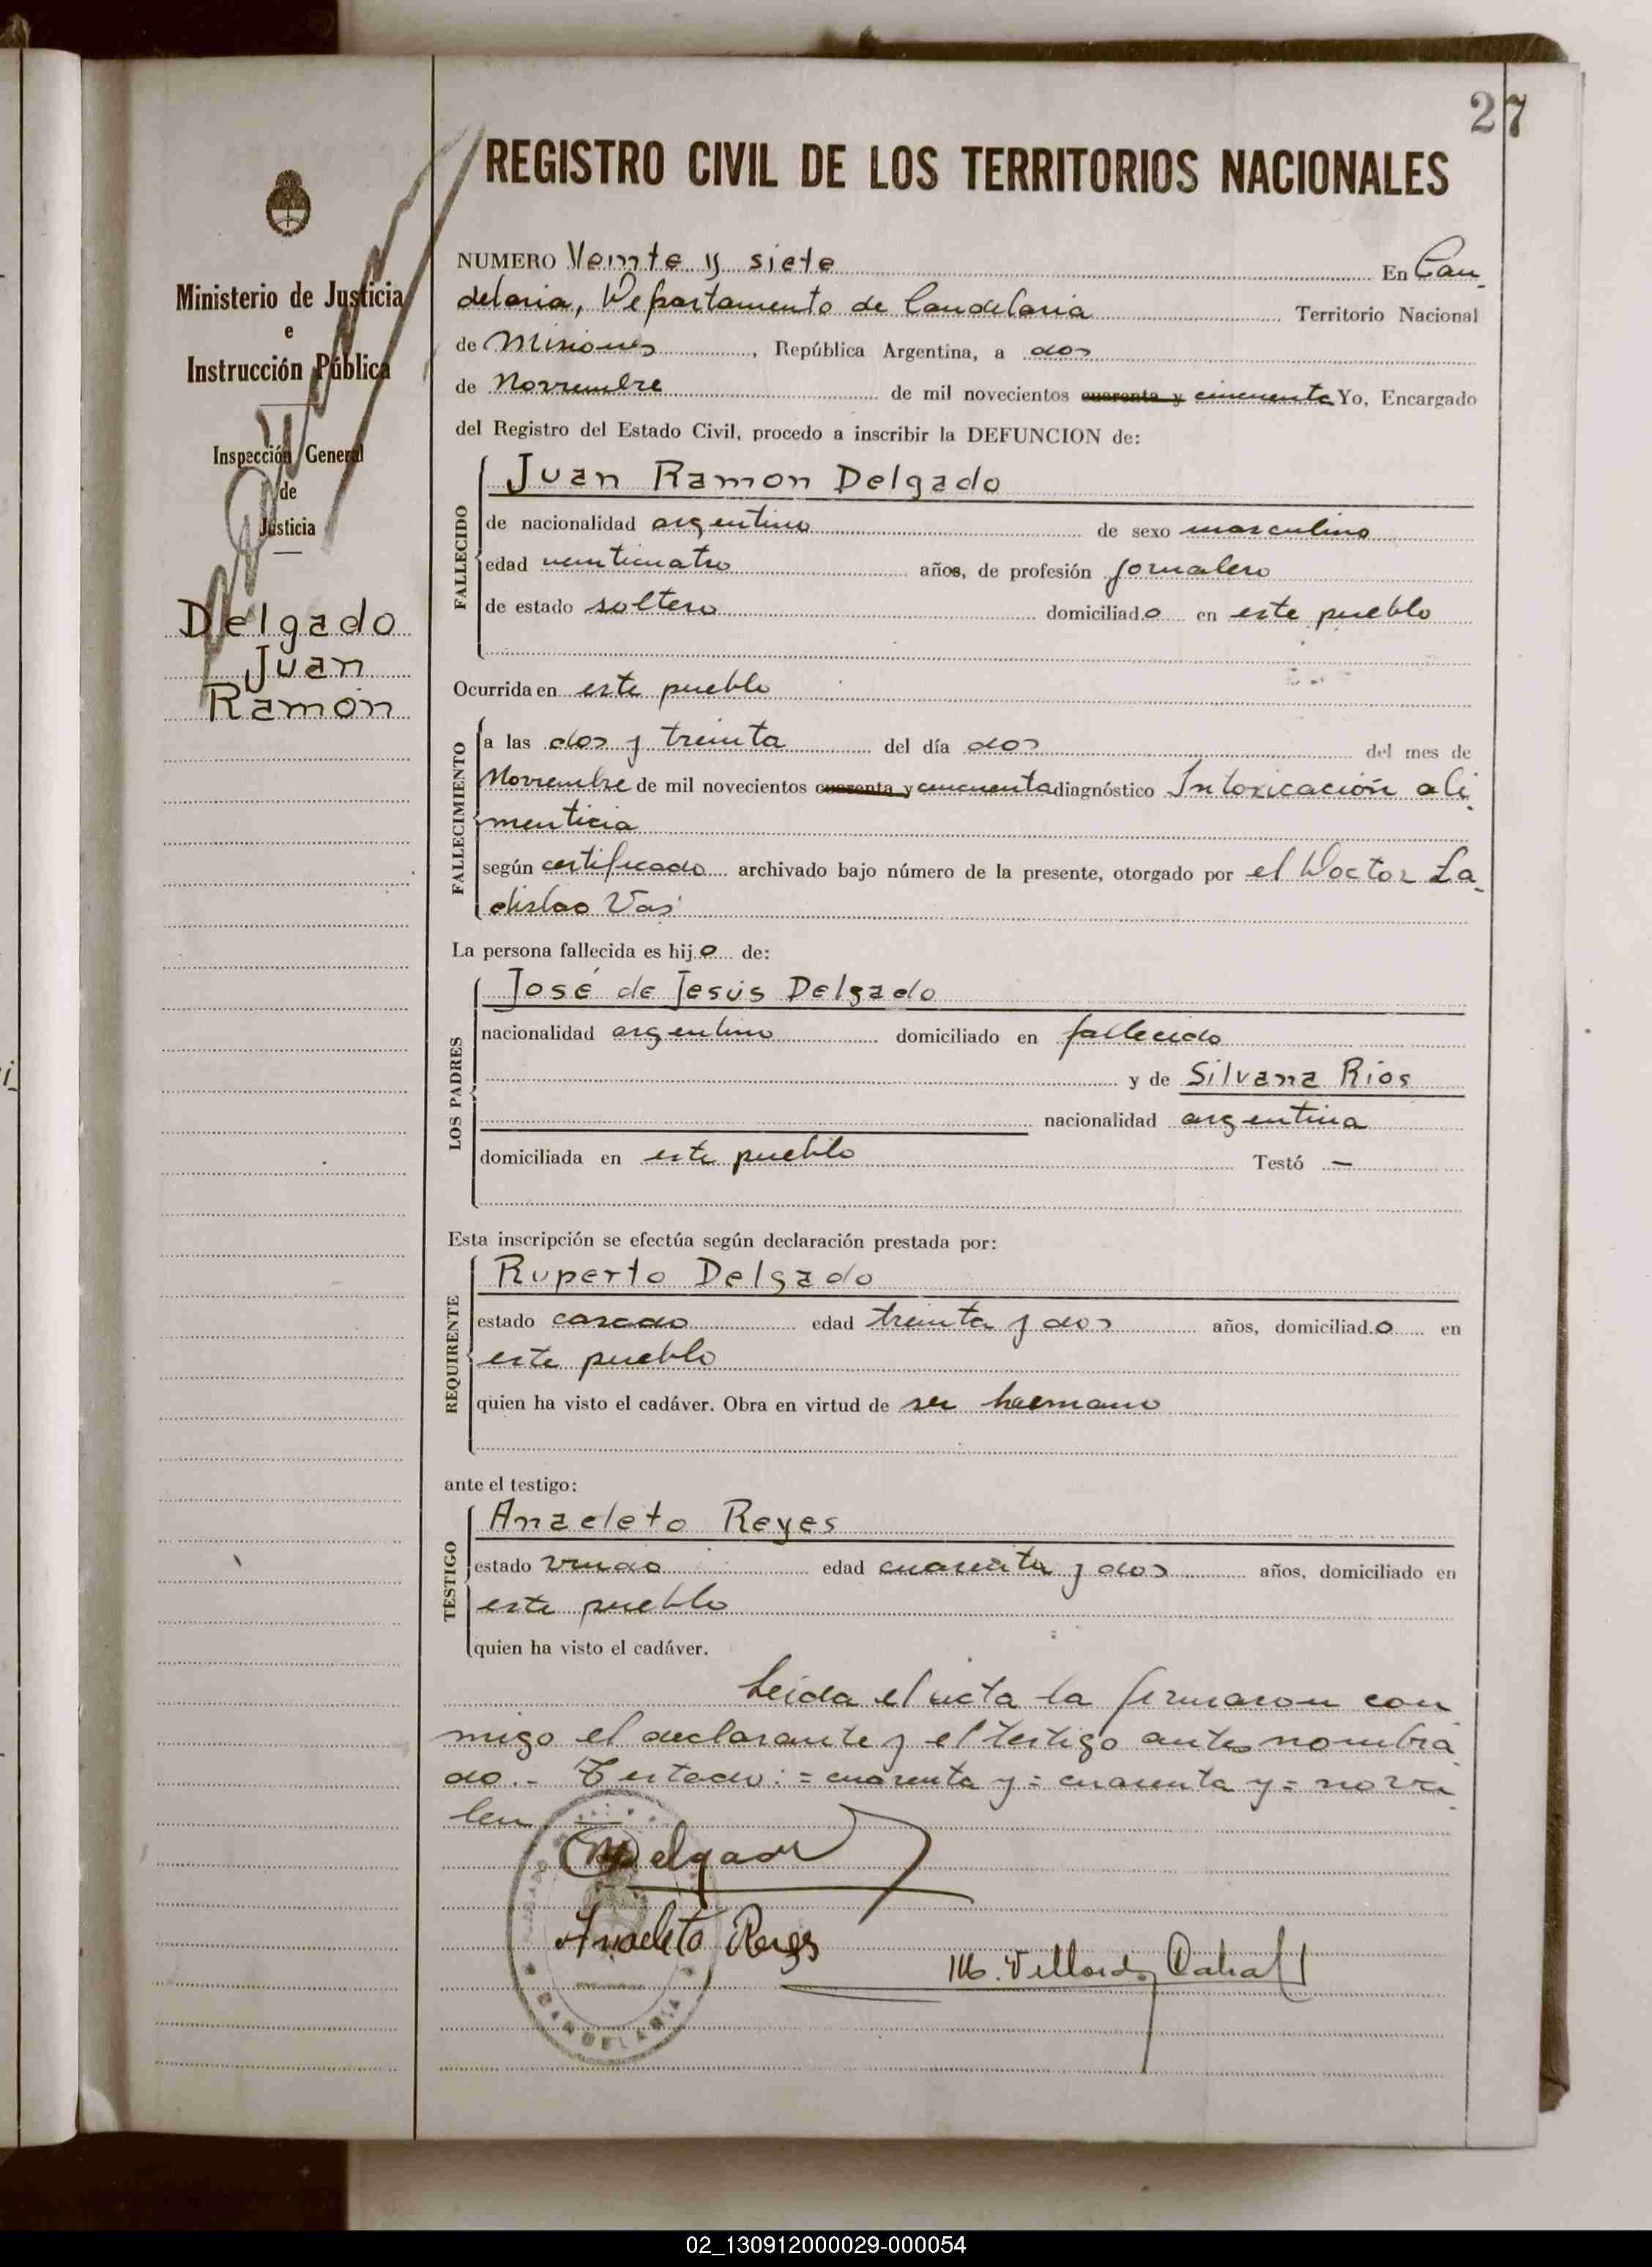 27
REGISTRO CIVIL DE LOS TERRITORIOS NACIONALES
Ministerio de Justicia
e
Instrucción Pública
Inspección General
de
Justicia
Delgado
Juan
Ramón
NUMERO Veinte y siete En Can-
delaria, Departamento de Candelaria Territorio Nacional
de Misiones, República Argentina, a dos
de Noviembre de mil novecientos cuarenta y cincuenta Yo, Encargado
del Registro del Estado Civil, procedo a inscribir la DEFUNCION de:
FALLECIDO
Juan Ramon Delgado
de nacionalidad argentino de sexo masculino
edad veinticuatro años, de profesión jornalero
de estado soltero domiciliado en este pueblo
Ocurrida en este pueblo
FALLECIMIENTO
a las dos y treinta del día dos del mes de
Noviembre de mil novecientos cuarenta y cincuenta diagnóstico Intoxicación ali-
menticia
según certificado archivado bajo número de la presente, otorgado por el Doctor La-
dislao Vas
La persona fallecida es hijo de:
LOS PADRES
José de Jesús Delgado
nacionalidad argentino domiciliado en fallecido
y de Silvana Rios
nacionalidad argentina
domiciliada en este pueblo Testó —
Esta inscripción se efectúa según declaración prestada por:
REQUIRENTE
Ruperto Delgado
estado casado edad treinta y dos años, domiciliado en
este pueblo
quien ha visto el cadáver. Obra en virtud de ser hermano
ante el testigo:
TESTIGO
Anacleto Reyes
estado viudo edad cuarenta y dos años, domiciliado en
este pueblo
quien ha visto el cadáver.
Leida el acta la firmaron con
migo el declarante y el testigo antes nombra
do.- Testado: = cuarenta y = cuarenta y = no va
len
Delgado
Anacleto Reyes
M. Cabral
CANDELARIA
02_130912000029-000054